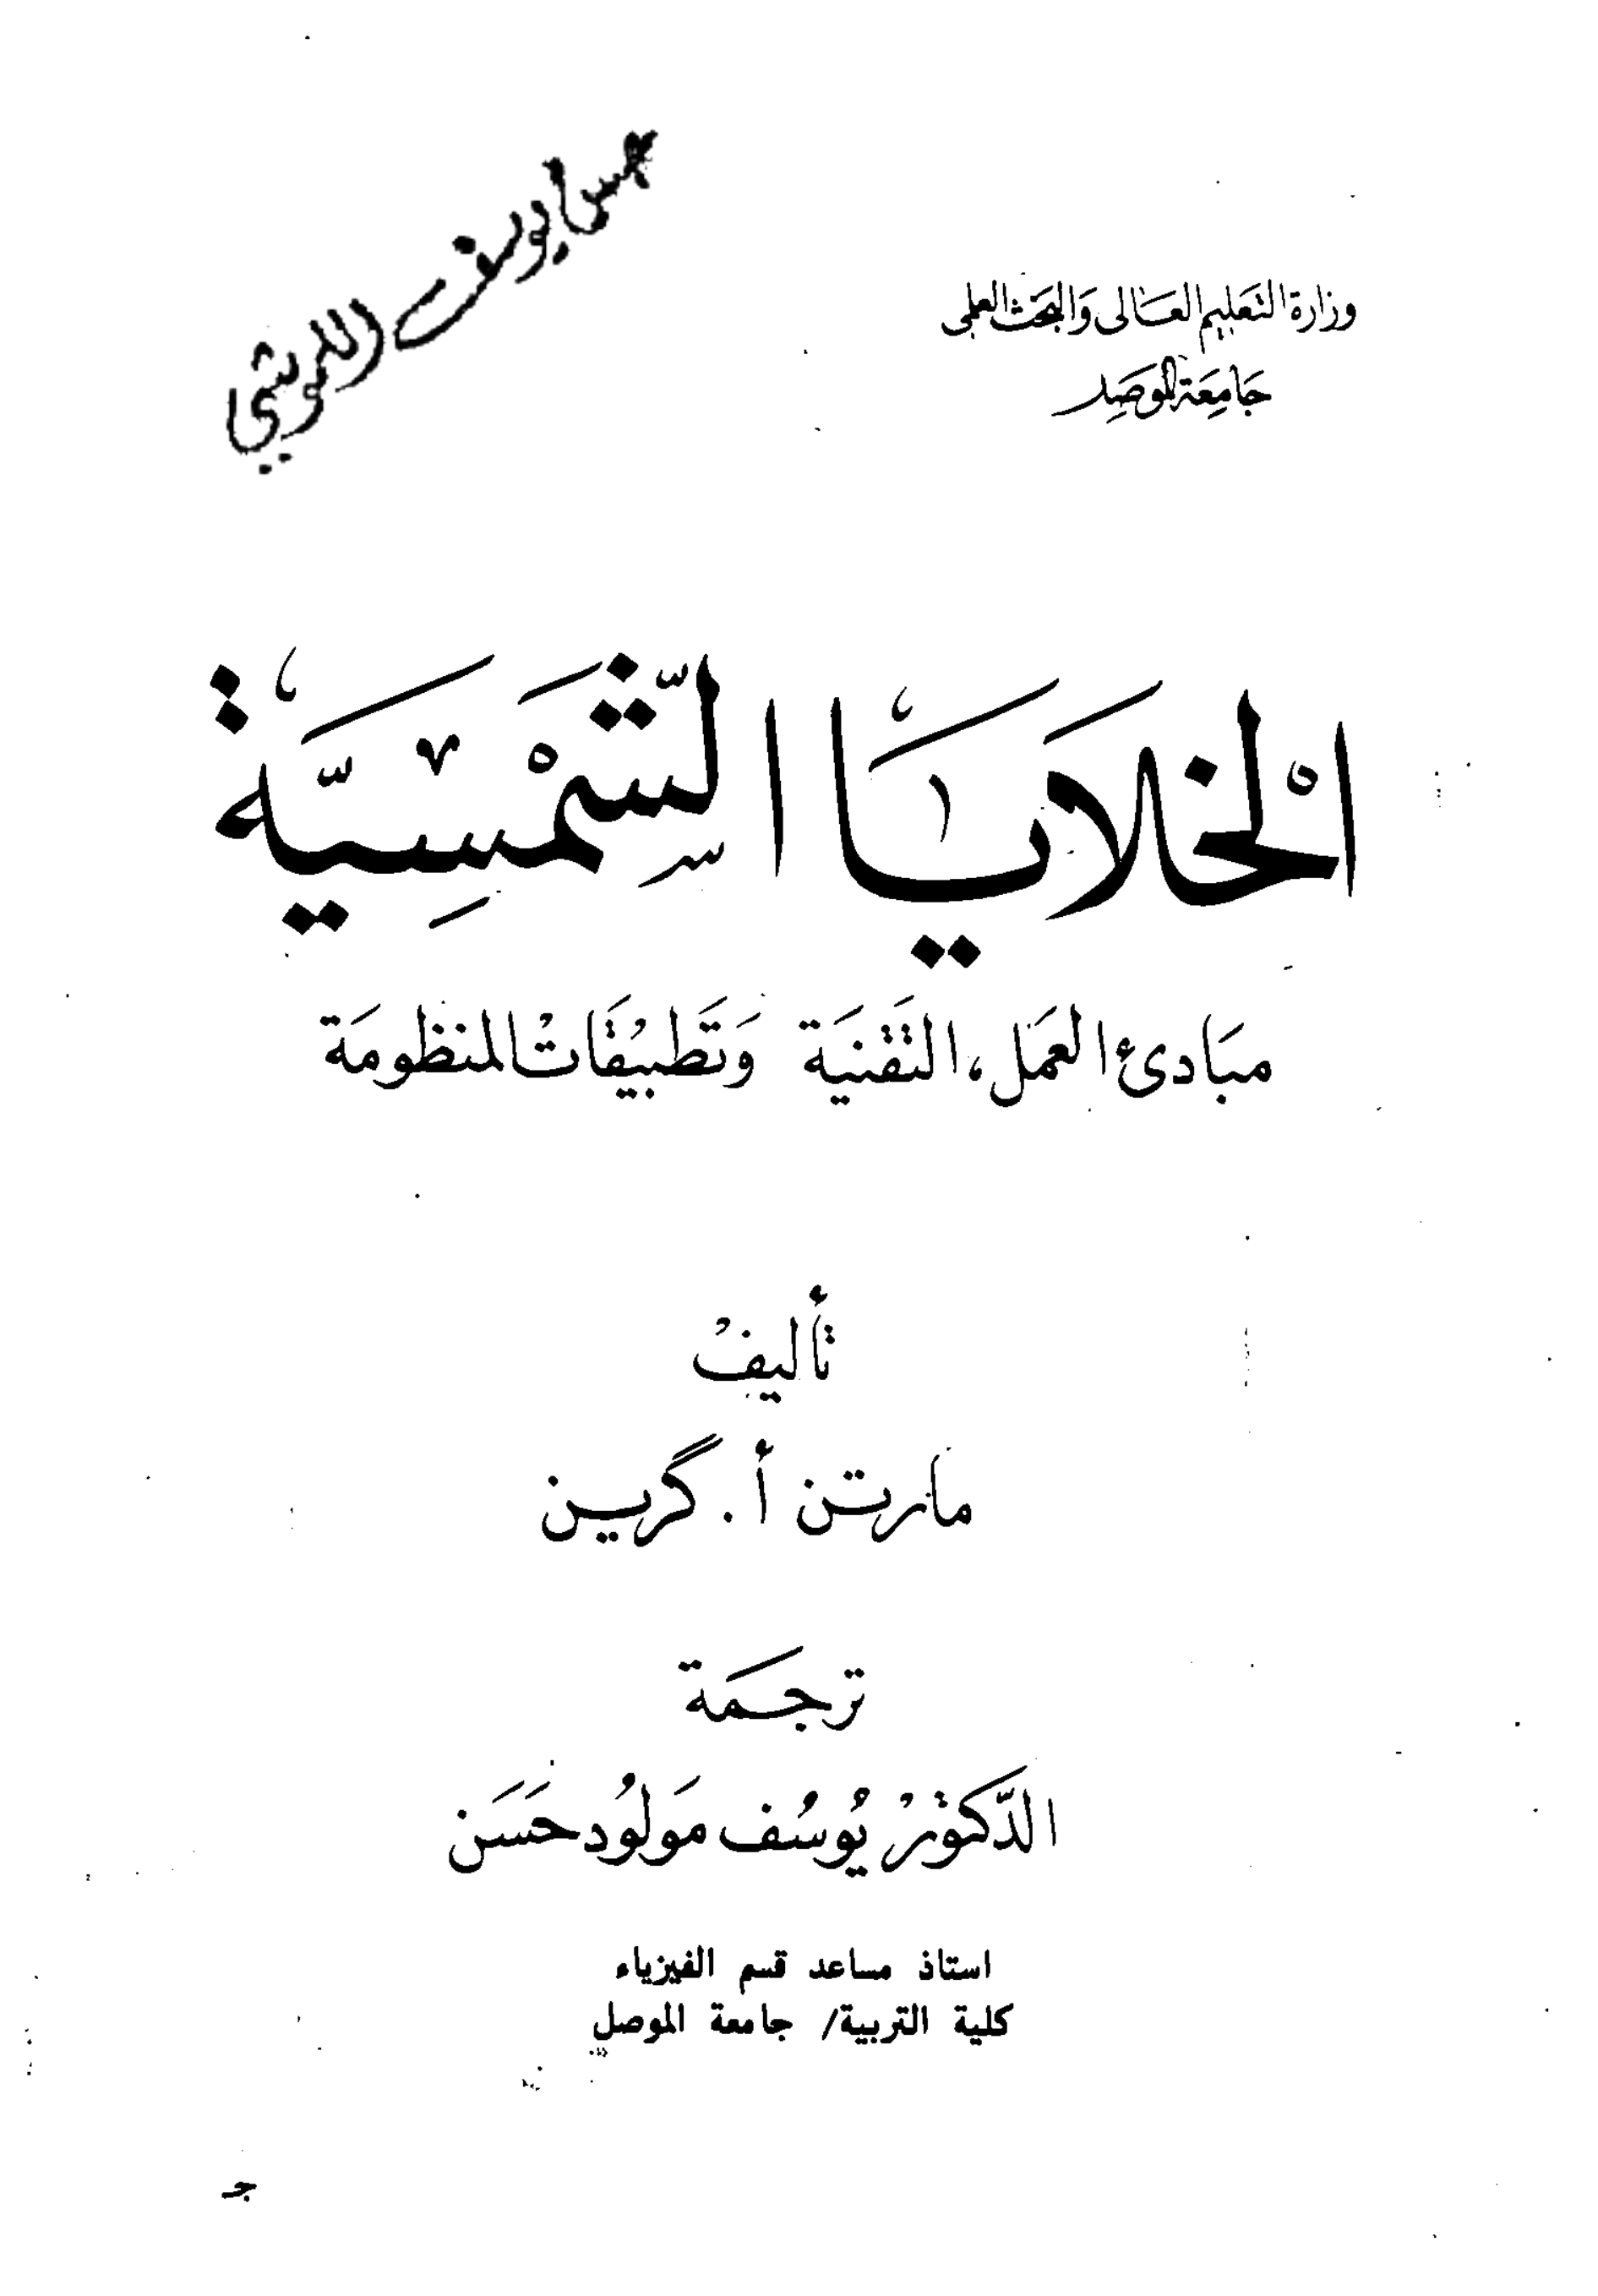 وزارة التعليم العالي والبحث العلمي
جامعة الموصل
الخلايا الشمسية
مبادئ العمل، التقنية وتطبيقات المنظومة
تأليف
مارتن أ. گرين
ترجمة
الدكتور يوسف مولود حسن
استاذ مساعد قسم الفيزياء
كلية التربية/ جامعة الموصل
جـ